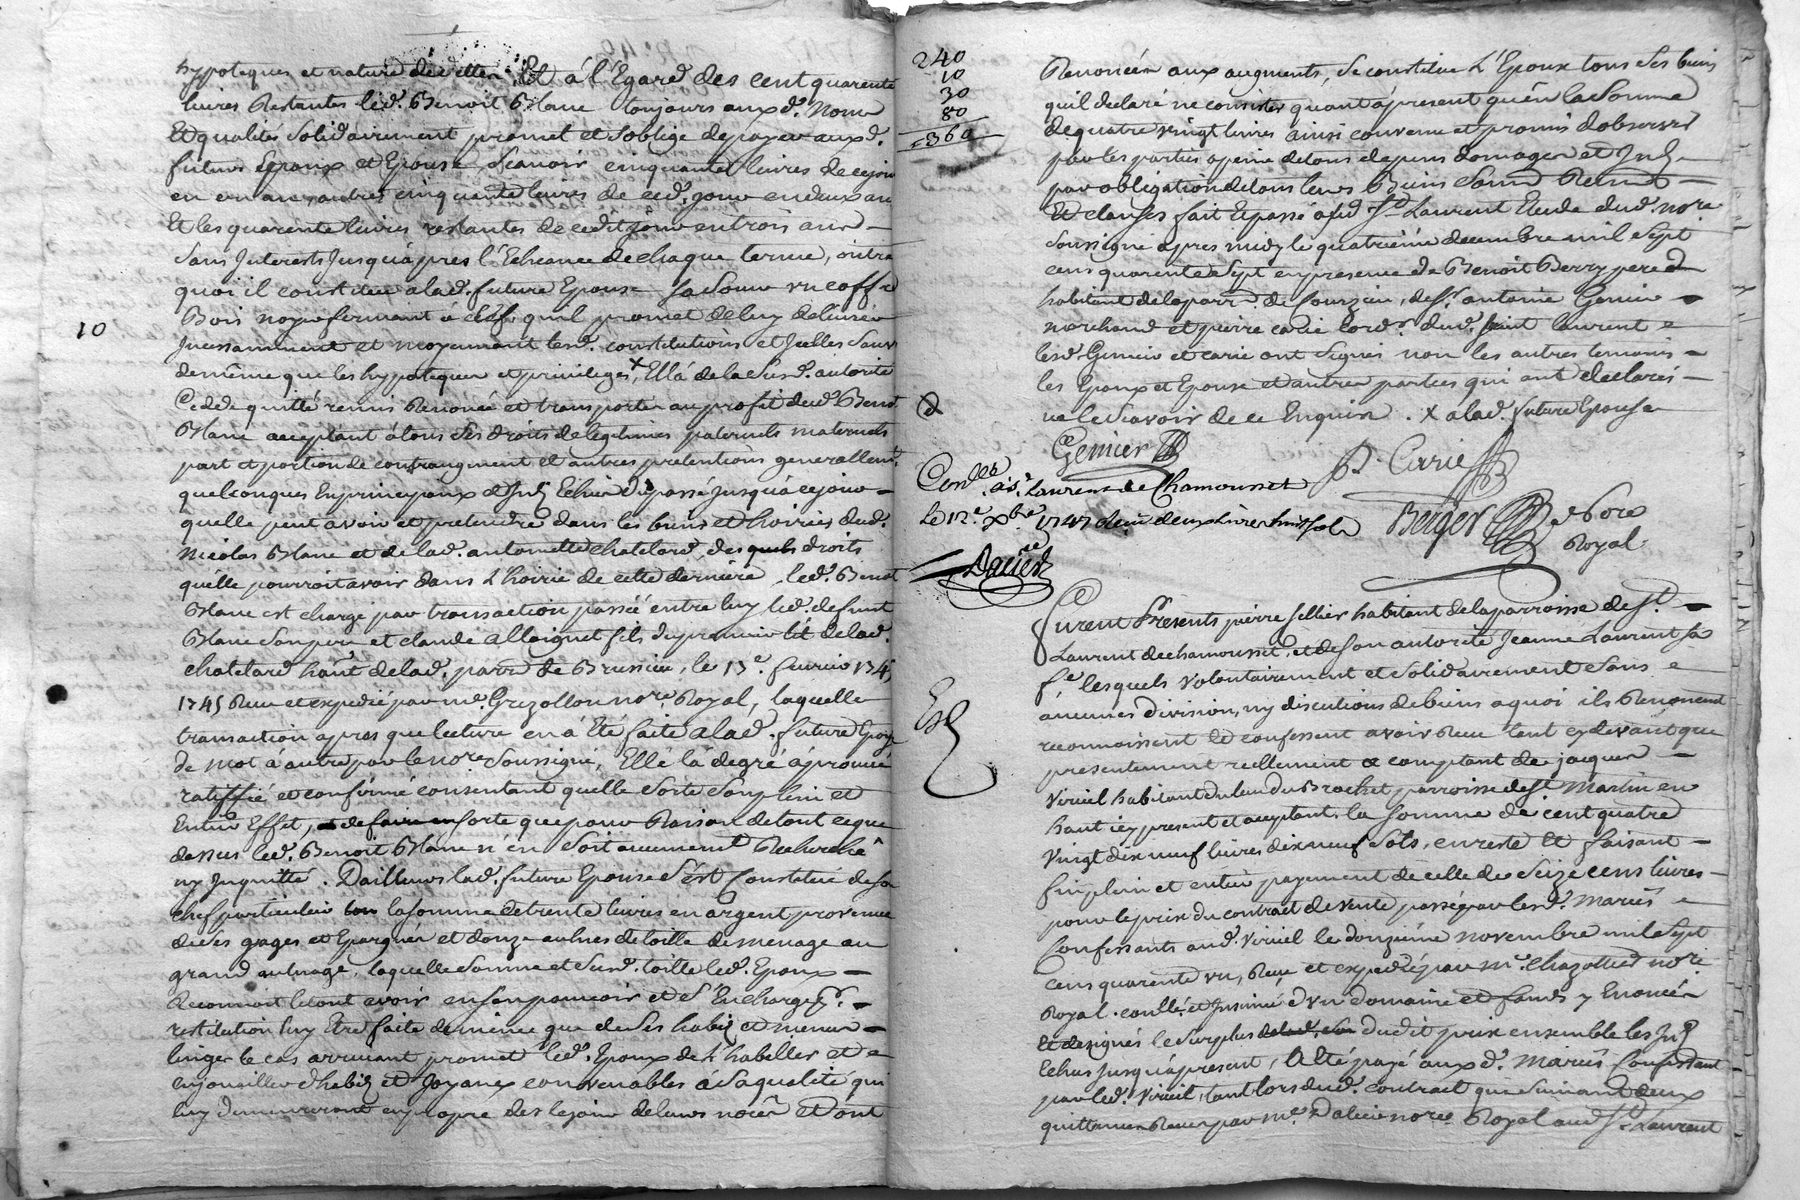 hypoteques et nature de dettes Et à l'Egard des cent quarente
livres Restantes led. Benoit Blanc toujours auxd. Noms
Et qualites solidairement promet et soblige de payer auxd.
futurs Epoux et Epouse, Scauoir cinquante livres de cejour
en un an, autres cinquante livres de ced. jour en deux an
Et les quarente livres restantes de cedit jour en trois ans
Sans Interests Jusquá pres l'Echeance de chaque terme, outre
quoi il constitue alad. future Epouse un coffre
Bois noyer fermant á clef, quil promet de luy delivrer
Jncessamment et moyennant lesd. constitutions et Jcelles sauf
de même que les hypoteques et privileges, × Ellá de la Susd. autorité
Cedde quitté remis Renoncé et transporté au profit dud. Benoit
Blanc acceptant á tous ses droits de legitimes paternels maternels
part et portion de et autres pretentions generallemt.
quelconques En principaux et Echus du passé Jusquá cejour
quelle peut avoir et pretendre dans les biens et hoiries dud.
Nicolas Blanc et de lad. antoinette chatelard, desquels droits
quélle pourroit avoir dans L'hoirie de cette derniére, led. Benoit
Blanc est chargé par transaction passée entre luy led. defunt
Blanc son pere et claude allaignet fils du premier lit de lad.
chatelard hant de lad. parr. de Brussieu, le 13e. fevrier 1745
1745 Recue et expedié par me. Grezollon nore. Royal, laquelle
transaction apres que lecture en á Eté faite alad. future Epouse
de mot á autre par le nore. Soussigné, Elle lá degré áprouvé
ratiffié et confirmé consentant quelle sorte son plein et
Entier Effet, de faire en sorte que pour Raison de tout ceque
dessus led. Benoit Blanc n'én soit aucunement Recherché
ny Jnquitté. Dailleurs lad. future Epouse s'ést Constitué de son
chef particulier la somme de trente livres en argent provenue
de ses gages et Epargnes et douze aulnes de toille de menage au
grand aulnage, laquelle somme et susd. toille led. Epoux
Reconnoit le tout avoir en son pouvoir et s'En charge pr.
restitution luy Etre faite de même que de ses habis et menus
linges le cas arrivant promet led. Epoux de L'habiller et
enjouailler d'habis et Joyaux convenables á sa qualité qui
luy demeureront en propre dés le jour de leurs noces et dont
10
240
10
30
80
= 360
Renoncer aux augments, Se constitue L'Epoux tous ses biens
quil declaré ne consister quant á present qu'én la somme
de quatre vingt livres ainsi convenu et promis d'observer
par les parties á peine de tous depens domages et
par obligation de tous leurs Biens
Et clauses fait et passé aud. St. Laurent Etude dud. nore.
soussigné apres midy le quatriéme decembre mil sept
cens quarente sept en presence de Benoit Berry pere
habitant de la parr. de Courzieu, de Sr. antoine Genier
marchand et pierre carie cord. dud. saint laurent
lesd. Genier et carie ont signés non les autres temoins
les Epoux et Epouse et autres parties qui ont declarés
ne le scavoir de ce Enquis. × alad. future Epouse
Genier
P. Carie
Conllé. á St. Laurent de Chamousset
Le 12e. Xbre. 1747 deux livres huit sols
Dalier
Berger Nore
Royal
Furent Présents pierre sellier habitant de la parroisse de St.
Laurent de chamousset, et de son autorité Jeanne Laurent sa
fe. lesquels volontairement et solidairement sans
aucunes division, ny discutions de biens aquoi ils Renoncent
reconnoissent et confessent avoir Recu tant cy devant que
presentement reellement & comptant de jacques
Viricel habitant du lieu du Brochet parroisse de St. Martin en
haut icy present et acceptant. la somme de cent quatre
vingt dix neuf livres dix neuf sols, en reste et faisant
fin plein et entier payement de celle de seize cens livres
pour le prix du contract de vente passé par lesd. mariés
Confessants aud. viricel le douziéme novembre mil sept
cens quarente un, Recu et expedié par me. Chazottier nore.
Royal. conllé. et Jnsinué d'un domaine et fonds y Enoncés
Et designés le surplus dudit prix ensemble les
Echus Jusquá present, á Eté payé auxd. mariés Confessant
par led. viricel, tant lors dud. contract que suivant deux
quittances Recues par me. Dalier nore. Royal aud. St. Laurent